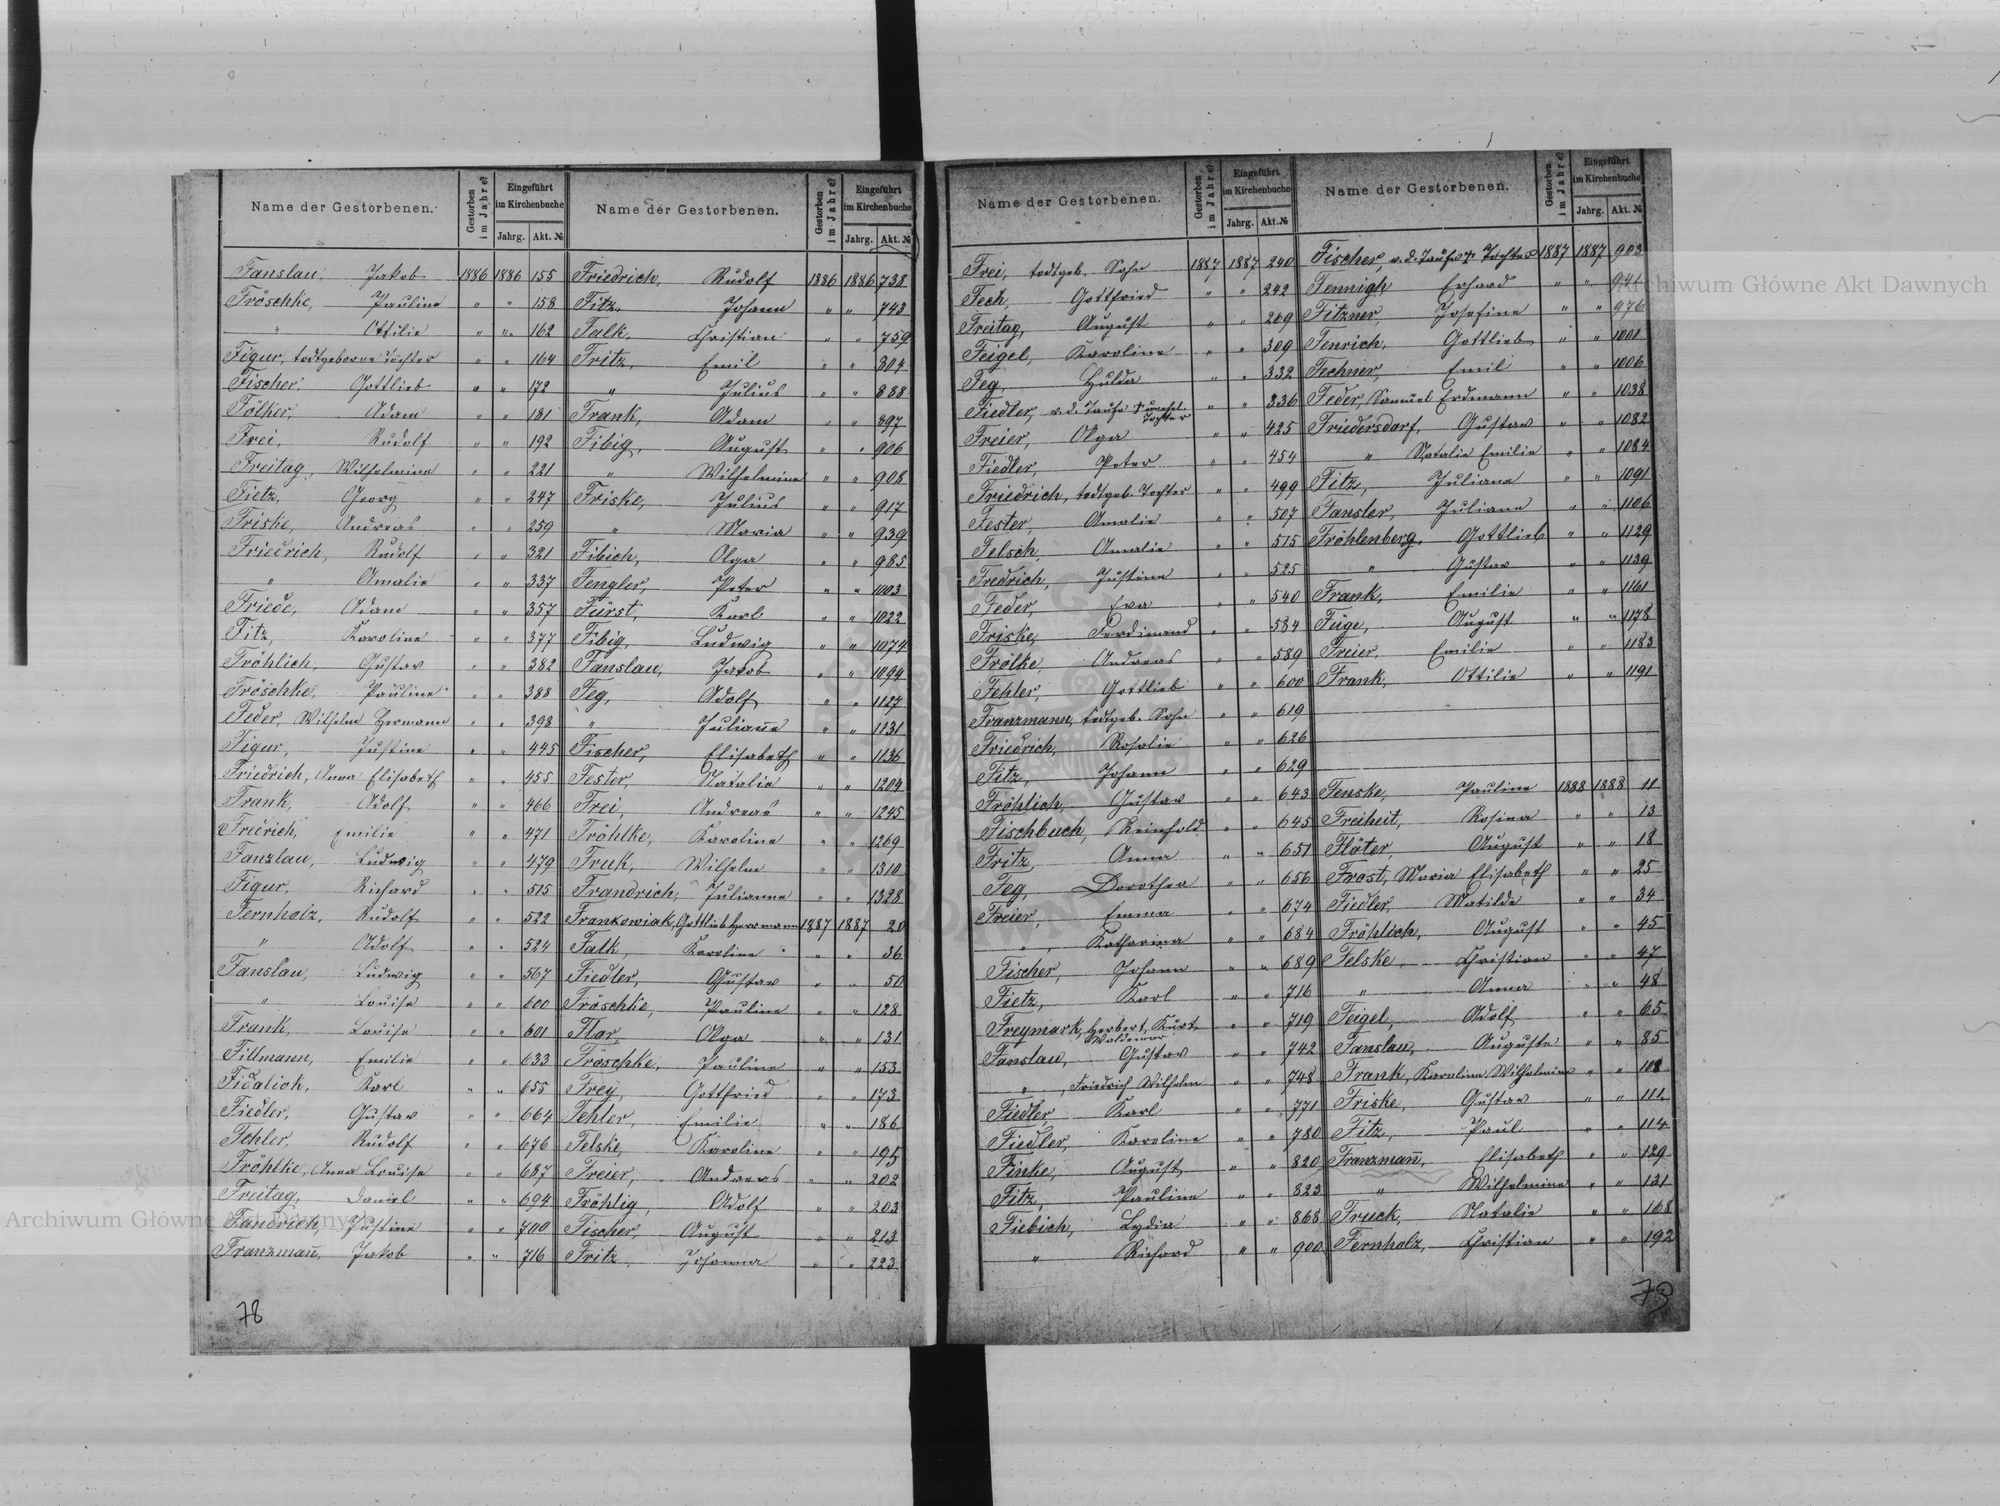 Name der Gestorbenen.
Gestorben im Jahre?
Eingeführt im Kirchenbuche
Jahrg. Akt. №
Fanslau, Jakob 1886 1886 155
Fröschke, Pauline " " 158
" Ottilie " " 162
Figur, todtgeborne Tochter " " 164
Fischer Gottlieb " " 172
Fölker, Adam " " 181
Frei, Rudolf " " 192
Freitag, Wilhelmine " " 221
Fietz, Georg " " 247
Friske, Andreas " " 259
Friedrich, Rudolf " " 321
" Amalie " " 337
Friede, Adam " " 357
Fitz, Karoline " " 377
Fröhlich, Gustav " " 382
Fröschke, Pauline " " 388
Feder, Wilhelm Hermann " " 398
Figur, Justine " " 445
Friedrich, Anna Elisabeth " " 455
Frank, Adolf " " 466
Friedrich, Emilie " " 471
Fanzlau, Ludwig " " 479
Figur, Richard " " 515
Fernholz, Rudolf " " 522
" Adolf " " 524
Fanslau, Ludwig " " 567
" Louise " " 600
Frank, Louise " " 601
Fillmann, Emilie " " 633
Fidaliok, Karl " " 655
Fiedler, Gustav " " 664
Fehler, Rudolf " " 676
Fröhlke, Anna Louise " " 687
Freitag, Daniel " " 694
Fandrich, Justine " " 700
Franzmann, Jakob " " 716
78
Name der Gestorbenen.
Gestorben im Jahre?
Eingeführt im Kirchenbuche
Jahrg. Akt. №
Friedrich, Rudolf 1886 1886 738
Fitz, Johann " " 743
Falk, Christian " " 759
Fritz, Emil " " 804
" Julius " " 888
Frank, Adam " " 897
Fibig, August " " 906
" Wilhelmine " " 908
Friske, Julius " " 917
" Maria " " 939
Fibich, Olga " " 985
Fengler, Peter " " 1003
Fürst, Karl " " 1022
Fibig, Ludwig " " 1074
Fanslau, Jakob " " 1094
Feg, Adolf " " 1127
" Julianne " " 1131
Fischer, Elisabeth " " 1136
Fester, Natalie " " 1204
Frei, Andreas " " 1245
Fröhlke, Karoline " " 1269
Fruk, Wilhelm " " 1310
Frandrich, Julianna " " 1328
Frankowiak, Gottlieb Herrmann 1887 1887 20
Falk, Karoline " " 36
Fiedler, Gustav " " 50
Fröschke, Pauline " " 128
Flor, Olga " " 131
Fröschke, Pauline " " 153
Frey, Gottfried " " 173
Fehler, Emilie " " 186
Felske, Karoline " " 195
Freier, Andreas " " 202
Fröhlig, Adolf " " 203
Fischer, August " " 213
Fritz, Johanna " " 223
Name der Gestorbenen.
Gestorben im Jahre?
Eingeführt im Kirchenbuche
Jahrg. Akt. №
Frei, todtgeb. Sohn 1887 1887 240
Fech, Gottfried " " 242
Freitag, August " " 269
Feigel, Karoline " " 309
Feg, Hulda " " 332
Fiedler, v. d. Taufe † Tochter " " 336
Freier, Olga " " 425
Fiedler, Peter " " 454
Friedrich, todtgeb. Tochter " " 499
Fester, Amalie " " 507
Felsch, Amalie " " 515
Fredrich, Justine " " 525
Feder, Eva " " 540
Friske, Ferdinand " " 584
Frölke, Andreas " " 589
Fehler, Gottlieb " " 600
Franzmann, todtgeb. Sohn " " 619
Friedrich, Rosalie " " 626
Fitz, Johann " " 629
Fröhlich, Gustav " " 643
Fischbuch, Reinhold " " 645
Fritz, Anna " " 651
Feg, Dorothea " " 656
Freier, Emma " " 674
" Katharina " " 684
Fischer, Johann " " 689
Fietz, Karl " " 716
Freymark, Herbert, Kurt, Waldemar " " 719
Fanslau, Gustav " " 742
" , Friedrich Wilhelm " " 748
Fiedler, Karl " " 771
Fiedler, Karoline " " 780
Finke, August " " 820
Fitz, Pauline " " 823
Fiebich, Lydia " " 868
" Richard " " 900
Name der Gestorbenen.
Gestorben im Jahre?
Eingeführt im Kirchenbuche
Jahrg. Akt. №
Fischer, v. d. Taufe † Tochter 1887 1887 903
Fennigh Erhard " " 941
Fitzner, Josefine " " 976
Fenrich, Gottlieb " " 1001
Fechner, Emil " " 1006
Feder, Samuel Erdmann " " 1038
Friedersdorf, Gustav " " 1082
" Natalie Emilie " " 1084
Fitz, Juliana " " 1091
Fansler, Juliane " " 1106
Fröhlenberg, Gottlieb " " 1129
" Gustav " " 1139
Frank, Emilie " " 1161
Fuge, August " " 1178
Freier, Emilie " " 1183
Frank, Ottilie " " 1191
Fenske, Pauline 1888 1888 11
Freiheit, Rosina " " 13
Flöter, August " " 18
Frost, Maria Elisabeth " " 25
Fiedler, Matilde " " 34
Fröhlich, August " " 45
Felske, Christian " " 47
" Anna " " 48
Feigel, Adolf " " 65
Fanslau, Auguste " " 85
Frank, Karolina Wilhelmine " " 108
Friske, Gustav " " 111
Fitz, Paul " " 114
Franzmann, Elisabeth " " 129
" Wilhelmine " " 131
Fruck, Natalie " " 168
Fernholz, Christian " " 192
79
Archiwum Główne Akt Dawnych
Archiwum Główne Akt Dawnych